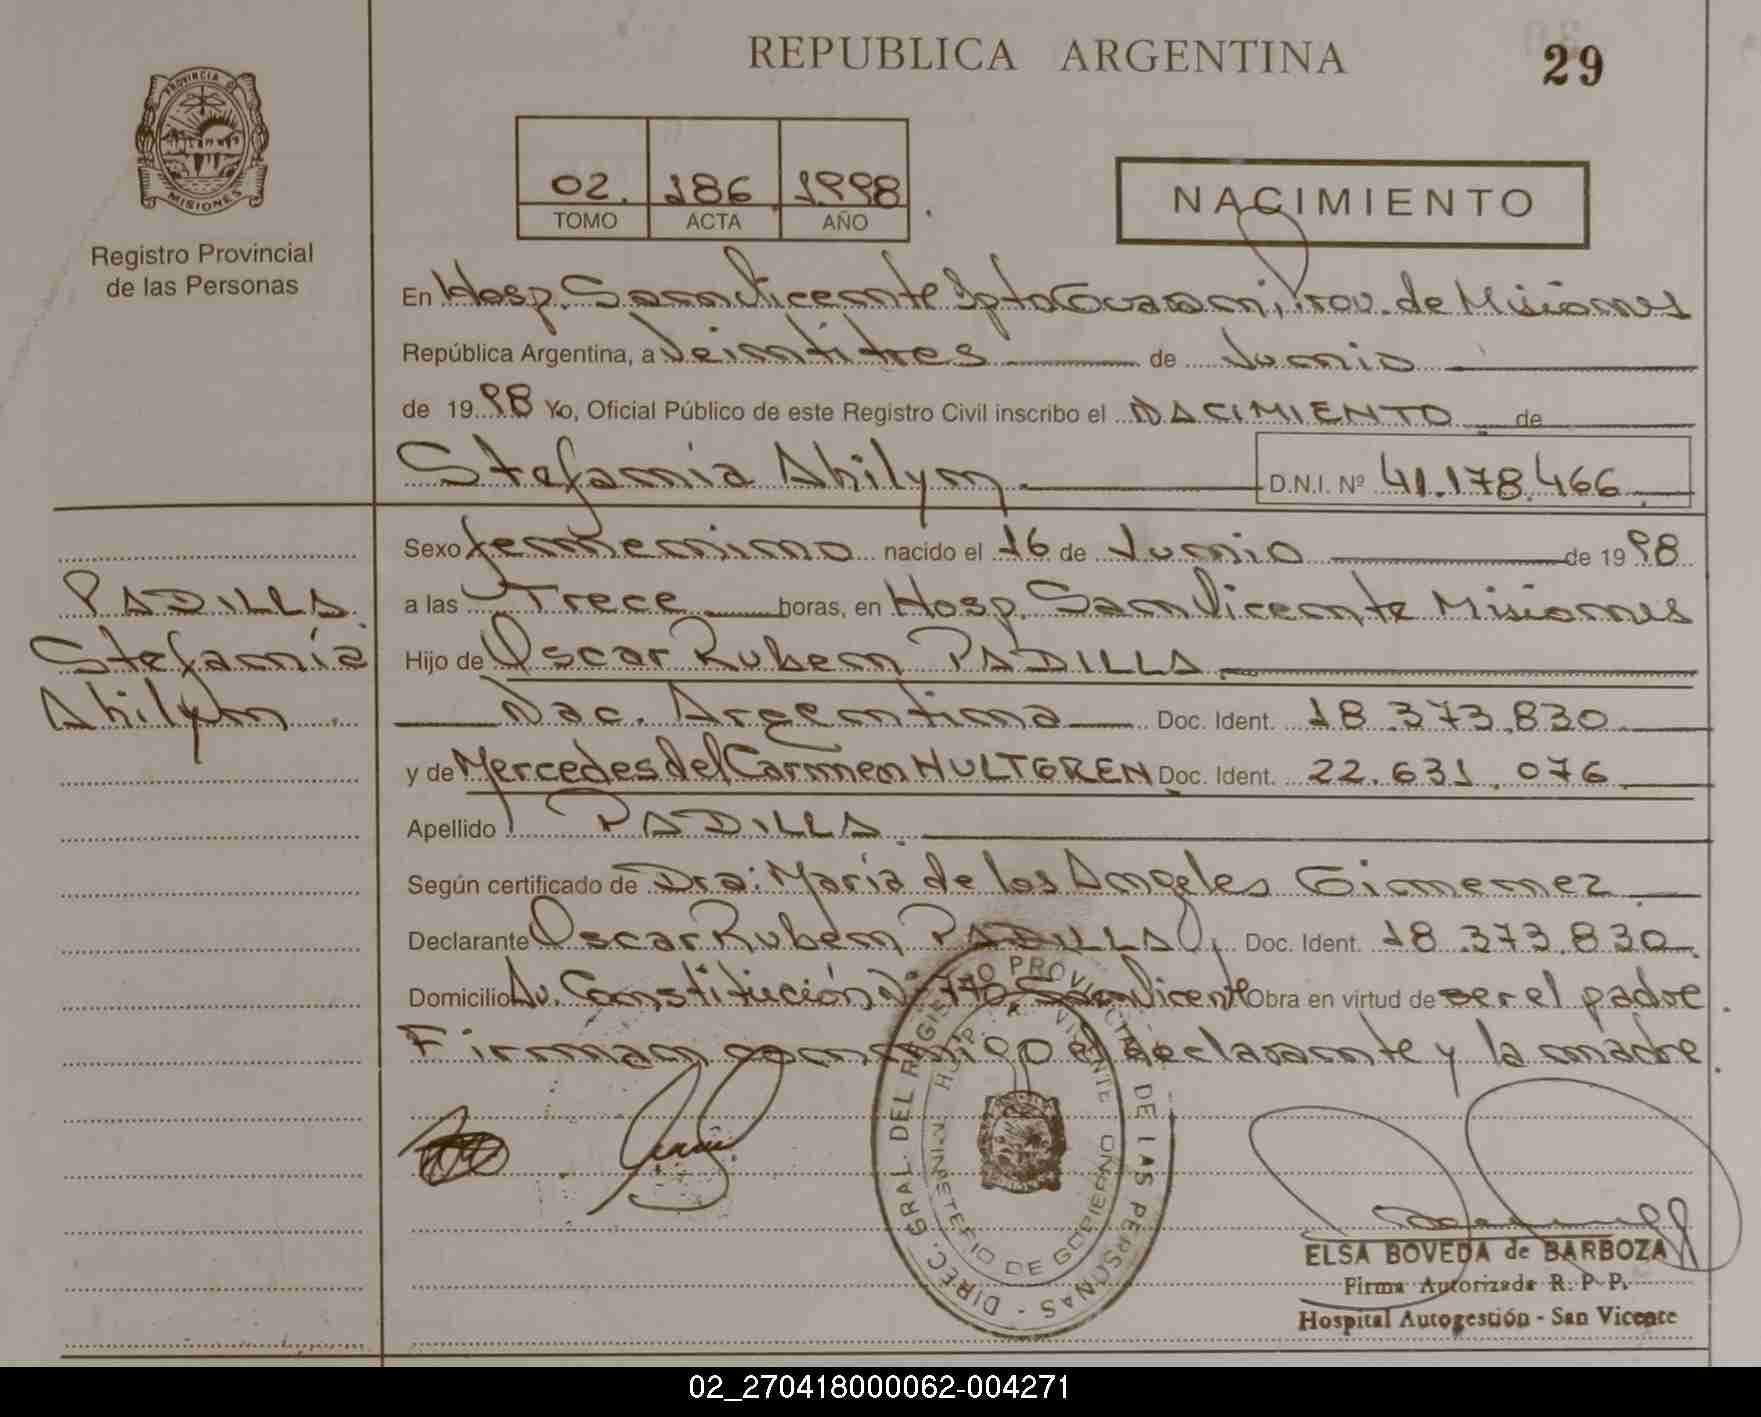 REPUBLICA ARGENTINA
29
PROVINCIA DE
MISIONES
Registro Provincial
de las Personas
02. 186 1998
TOMO ACTA AÑO
NACIMIENTO
En Hosp. San Vicente Dpto Guaraní, Prov. de Misiones
República Argentina, a Veintitres de Junio
de 19 98 Yo, Oficial Público de este Registro Civil inscribo el NACIMIENTO de
Stefania Ahilyn D.N.I. Nº 41.178.466
Sexo femenino nacido el 16 de Junio de 19 98
a las Trece horas, en Hosp. San Vicente Misiones
Hijo de Oscar Ruben PADILLA
Nac. Argentina Doc. Ident. 18.373.830
y de Mercedes del Carmen HULTGREN Doc. Ident. 22.631.076
Apellido PADILLA
Según certificado de Dra: María de los Angeles Gimenez
Declarante Oscar Ruben PADILLA Doc. Ident. 18.373.830
Domicilio Av. Constitución Nº 770 San Vicente Obra en virtud de ser el padre
Firman conmigo el declarante y la madre.
PADILLA
Stefanía
Ahilyn
DIREC. GRAL. DEL REGISTRO PROVINCIAL DE LAS PERSONAS
HOSP. S. VICENTE
MINISTERIO DE GOBIERNO
ELSA BOVEDA de BARBOZA
Firma Autorizada R. P. P.
Hospital Autogestión - San Vicente
02_270418000062-004271